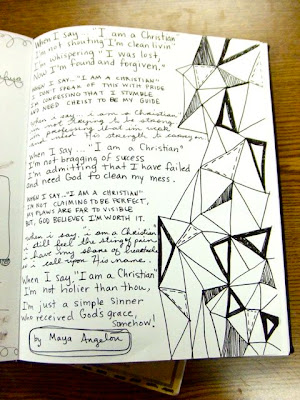 When I say "I am a Christian"
I'm not shouting I'm clean livin'
I'm whispering "I was lost,
Now I'm found and forgiven."
WHEN I SAY... "I AM A CHRISTIAN"
I DON'T SPEAK OF THIS WITH PRIDE
I'M CONFESSING THAT I STUMBLE
AND NEED CHRIST TO BE MY GUIDE
when i say... i am a christian"
i'm not trying to be strong
i'm professing that i'm weak
and need His strength to carry on
When I say... "I am a Christian"
I'm not bragging of sucess
I'm admitting that I have failed
and need God to clean my mess.
WHEN I SAY... "I AM A CHRISTIAN"
I'M NOT CLAIMING TO BE PERFECT,
MY FLAWS ARE FAR TO VISIBLE
BUT, GOD BELIEVES I'M WORTH IT.
when i say, "i am a Christian"
i still feel the sting of pain
i have my share of heartache
so i call upon His name.
When I say, "I am a Christian"
I'm not holier than thou,
I'm just a simple sinner
who received God's grace,
somehow!
by Maya Angelou